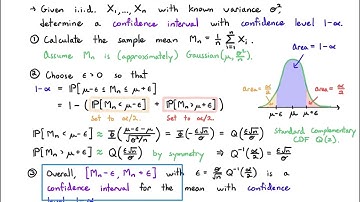 → Given i.i.d. X₁,..., Xₙ with known variance σ²,
determine a confidence interval with confidence level 1-α.
① Calculate the sample mean Mₙ = 1/n Σᵢ₌₁ⁿ Xᵢ.
Assume Mₙ is (approximately) Gaussian(μ, σ²/n).
area = 1-α
② Choose ε > 0 so that
1-α = P[μ-ε ≤ Mₙ ≤ μ+ε]
= 1 - (P[Mₙ < μ-ε] + P[Mₙ > μ+ε])
Set to α/2. Set to α/2.
area = α/2 area = α/2
μ-ε μ μ+ε
P[Mₙ < μ-ε] ≈ Φ((μ-ε-μ)/√(σ²/n)) = Φ(-ε√n/σ) = Q(ε√n/σ) Standard Complementary
CDF Q(z).
P[Mₙ > μ+ε] ≈ Q(ε√n/σ) by symmetry ⇒ Q⁻¹(α/2) = ε√n/σ
③ Overall, [Mₙ-ε, Mₙ+ε] with ε = σ/√n Q⁻¹(α/2) is a
confidence interval for the mean with confidence
level 1-α.